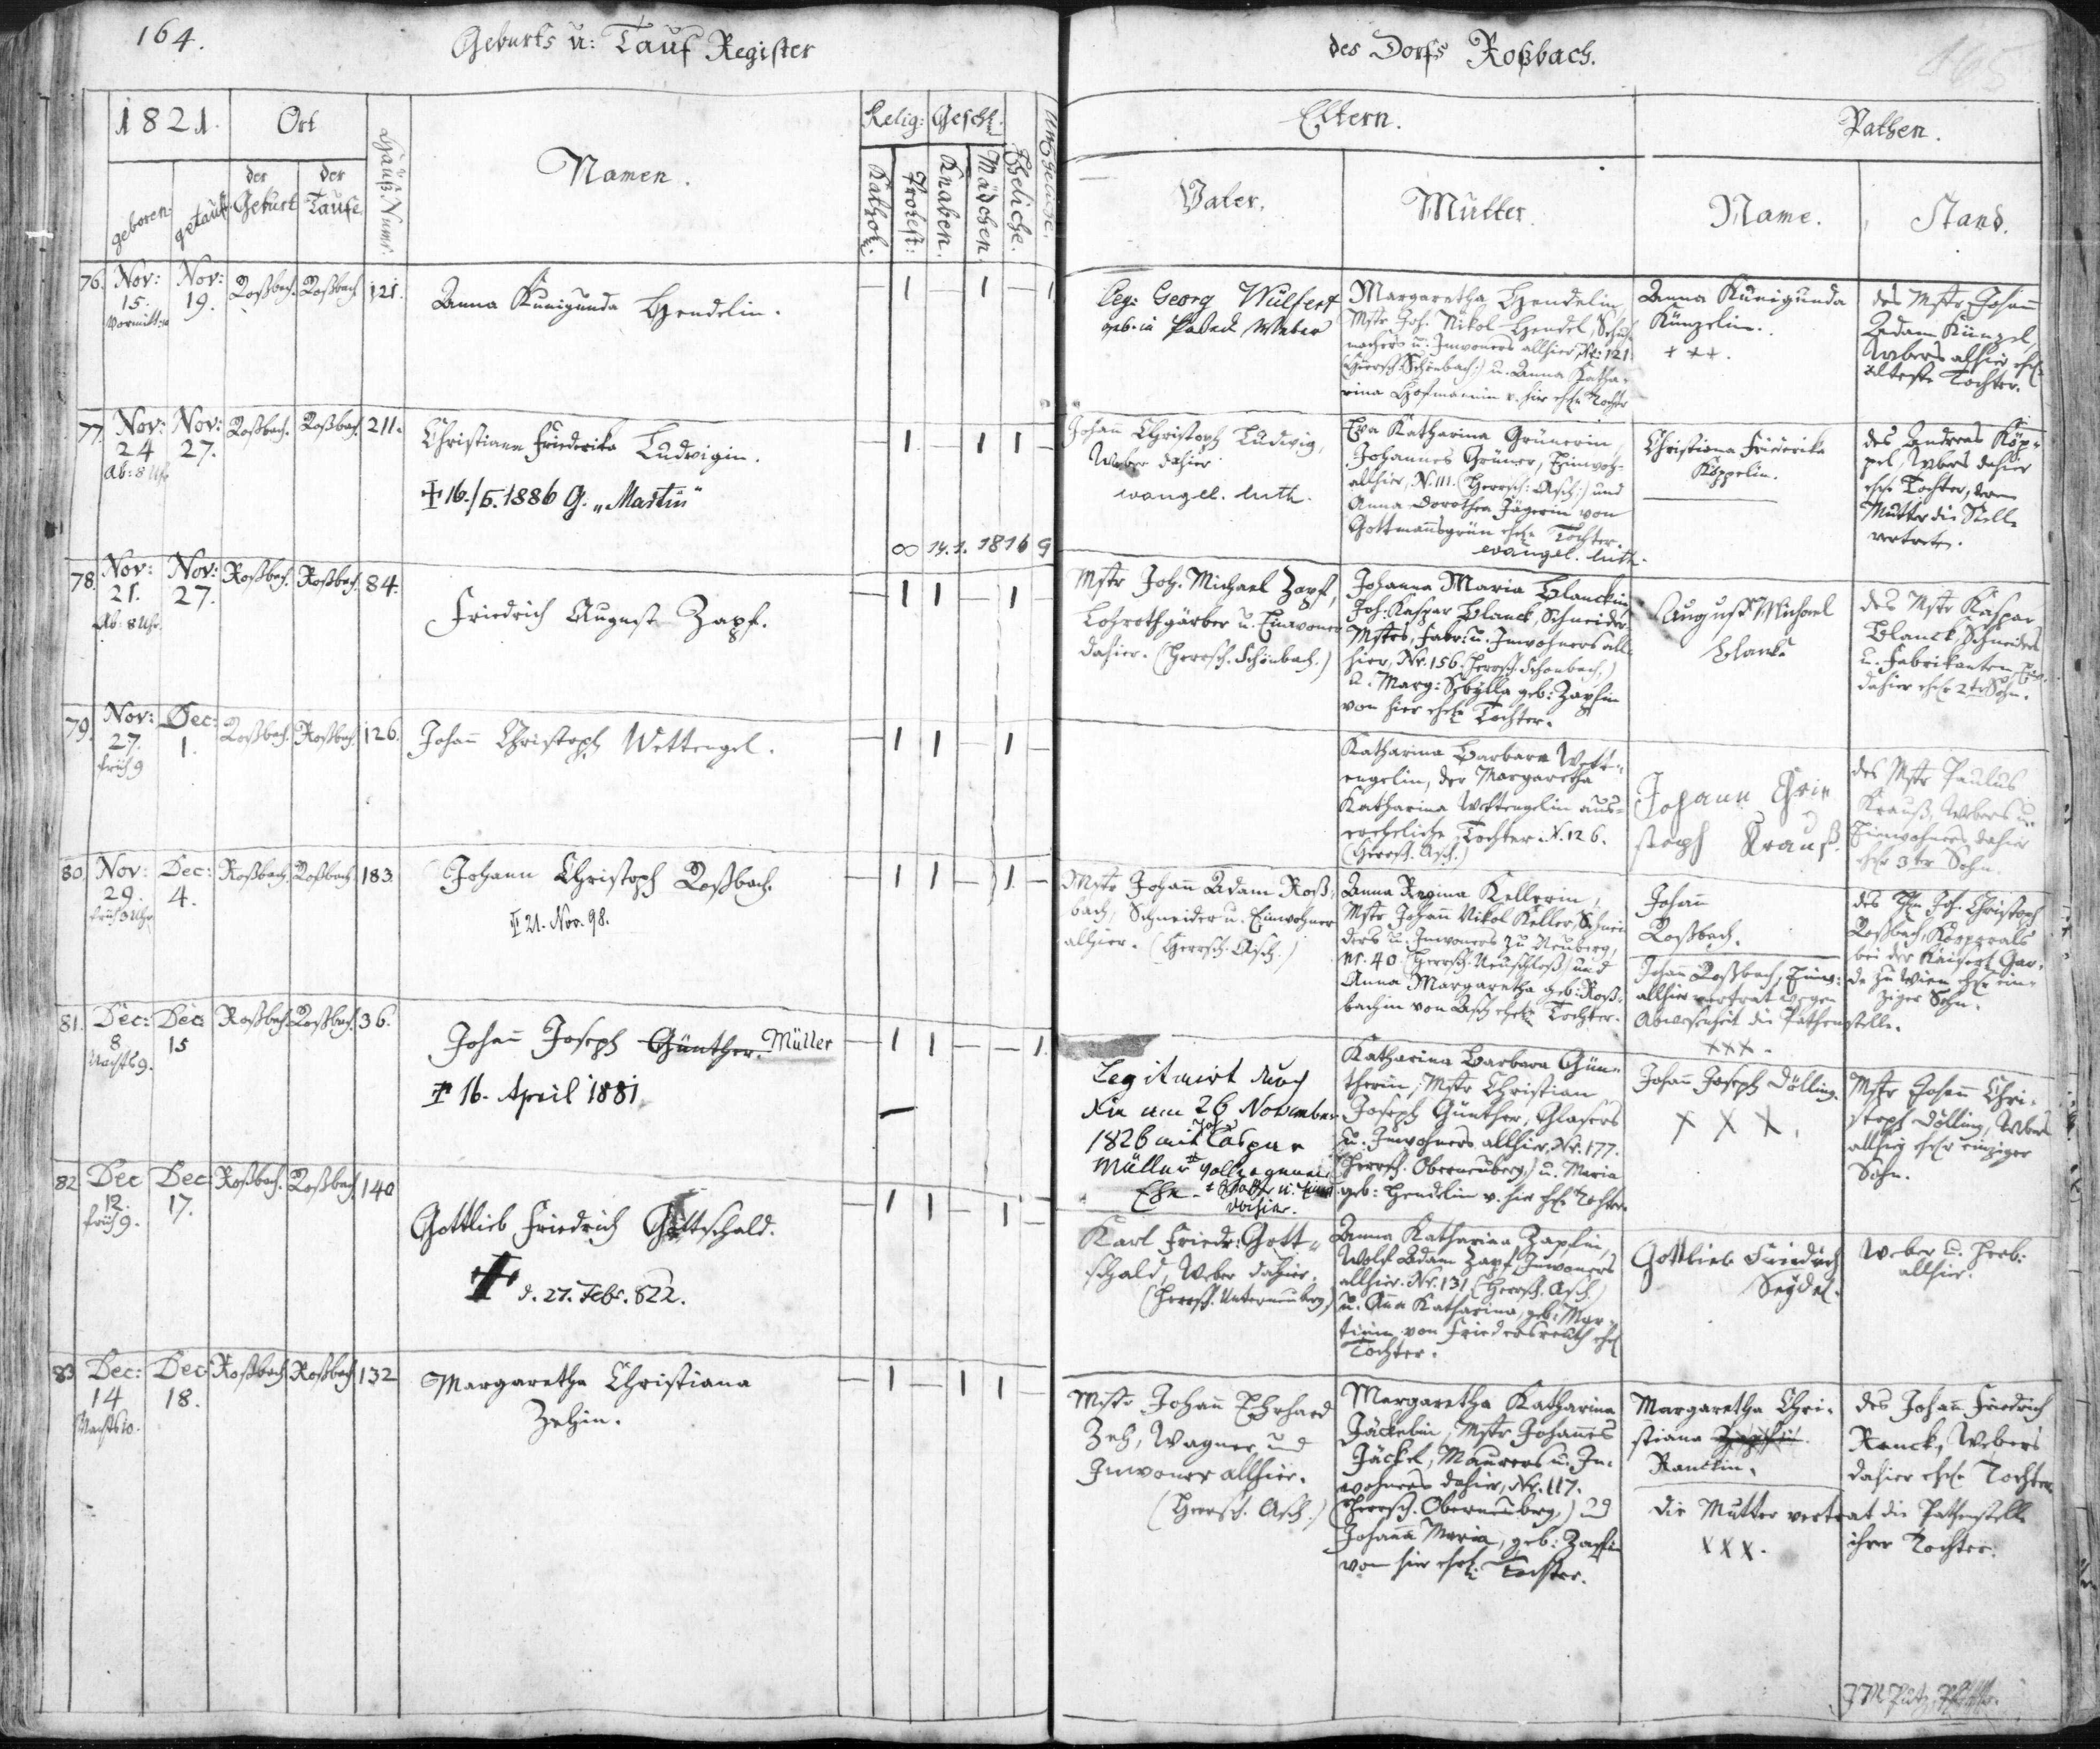 164.
Geburts u: Tauf Register
des Dorfs Roßbach.
165
1821.
Ort
Hauß Numr.
Namen.
Relig:
Geschl.
Eheliche.
Uneheliche.
Eltern.
Pathen.
geboren.
getauft.
der Geburt
der Taufe.
Kathol.
Protest:
Knaben.
Mädchen.
Vater.
Mutter.
Name.
Stand.
76.
Nov: 15. Vormitt:
Nov: 19.
Roßbach.
Roßbach.
121.
Anna Kunigunda Hendelin.
— 1 — 1 — 1
Leg: Georg Wulfert
geb. in Weber
Margaretha Hendelin,
Mstr Joh. Nikol Hendel, Schuh
machers u. Inwoners allhier, Nr: 121
(Herrsch. Schönbach) u. Anna Katha-
rina Hofmännin v. hier ehel. Tochter
Anna Kunigunda
Künzelin.
+++.
des Mstr Johann
Adam Künzel,
Webers alhier ehel.
älteste Tochter.
77.
Nov: 24 Ab: 8 Uhr
Nov: 27.
Roßbach.
Roßbach.
211.
Christiana Friederika Ludwigin.
✝ 16./5. 1886 G. „Martin"
— 1 — 1 1 —
∞ 14.1. 1816 9
Johann Christoph Ludwig,
Weber dahier
evangel. luth.
Eva Katharina Grünerin,
Johannes Grüner, Einwoh-
allhier, N. 111. (Herrsch: Asch:) und
Anna Dorothea Jägerin von
Gottmannsgrün ehel. Tochter.
evangel. luth.
Christiana Friederika
Köppelin.
des Andreas Köp-
pel, Webers dahier
ehel. Tochter, deren
Mutter die Stelle
vertreten.
78.
Nov: 21. Ab: 8 Uhr.
Nov: 27.
Roßbach.
Roßbach.
84.
Friedrich August Zapf.
— 1 1 — 1 —
Mstr Joh. Michael Zapf,
Lohrothgärber u. Einwoner
dahier. (Herrsch. Schönbach.)
Johanna Maria Blanckin,
Joh: Kaspar Blanck, Schneider-
Mstrs, Fabr: u. Inwohners all-
hier, Nr. 156. (Herrsch. Schönbach,)
u. Marg: Sybilla geb: Zapfin
von hier ehel. Tochter.
August Michael
Blank
des Mstr Kaspar
Blanck, Schneiders
u. Fabrikanten
dahier ehel. 2ter Sohn.
79.
Nov: 27. früh 9
Dec: 1.
Roßbach.
Roßbach.
126.
Johann Christoph Wettengel.
— 1 1 — 1 —
Katharina Barbara Wett-
engelin, der Margaretha
Katharina Wettengelin aus-
erehelichte Tochter N. 126.
(Herrsch. Asch.)
Johann Chris
stoph Krauß.
des Mstr Paulus
Krauß, Webers u.
Einwohners dahier
ehel. 3ter Sohn.
80.
Nov: 29. früh 3 Uhr
Dec: 4.
Roßbach.
Roßbach.
183.
Johann Christoph Roßbach.
✝ 21. Nov. 98.
— 1 1 — 1 —
Mstr Johann Adam Roß-
bach, Schneider u. Einwohner
alhier. (Herrsch. Asch.)
Anna Regina Kellerin,
Mstr Johann Nikol Keller, Schnei-
ders u. Inwoners zu Neuberg,
Nr. 40. (Herrsch. Neuschloß) und
Anna Margaretha geb: Roß-
bachin von Asch ehel. Tochter.
Johann
Roßbach.
Johann Roßbach, Einw:
allhier vertrat wegen
Abwesenheit die Pathenstelle.
xxx.
des Joh. Christoph
Roßbach, Korporals
bei der Kaiserl. Gar-
de zu Wien ehel. ein-
ziger Sohn.
81.
Dec: 8 Nachts 9.
Dec: 15
Roßbach.
Roßbach.
36.
Johann Joseph Günther. Müller
✝ 16. April 1881
— 1 1 — — 1
Legitimirt durch
die am 26 November
1826 mit Joh Caspar
Müller vollzogenen
Ehe. dahier.
Katharina Barbara Gün-
therin, Mstr Christian
Joseph Günther, Glasers
u. Inwohners allhier, Nr. 177.
(Herrsch. Oberneuberg,) u. Maria
geb: Hendelin v. hier ehel. Tochter.
Johann Joseph Dölling.
X X X.
Mstr Johann Chri-
stoph Dölling, Webers
allhier ehel. einziger
Sohn.
82.
Dec 12. früh 9.
Dec 17.
Roßbach.
Roßbach.
140
Gottlieb Friedrich Gottschald.
✝ d. 27. Febr. 822.
— 1 1 — 1 —
Karl Friedr: Gott-
schald, Weber dahier.
(Herrsch. Unterneuberg.)
Anna Katharina Zapfin,
Wolf Adam Zapf Inwoners
allhier. Nr. 131 (Herrsch. Asch.)
u. Anna Katharina, geb: Mar-
tinin von Friedersreuth ehel
Tochter.
Gottlieb Friedrich
Seydel.
Weber u. Herb:
allhier.
83
Dec: 14 Nachts 10.
Dec 18.
Roßbach
Roßbach
132
Margaretha Christiana
Zehin.
— 1 — 1 1 —
Mstr Johann Erhard
Zeh, Wagner und
Inwoner allhier.
(Herrsch. Asch.)
Margaretha Katharina
Jäckelin, Mstr Johannes
Jäckel, Maurers u. In-
wohners dahier, Nr. 117.
(Herrsch. Oberneuberg,) und
Johanna Maria, geb: Zapfin
von hier ehel. Tochter.
Margaretha Chri-
stiana
Ranckin.
die Mutter vertrat die Pathenstelle
ihrer Tochter.
XXX.
des Johann Friedrich
Ranck, Webers
dahier ehel. Tochter